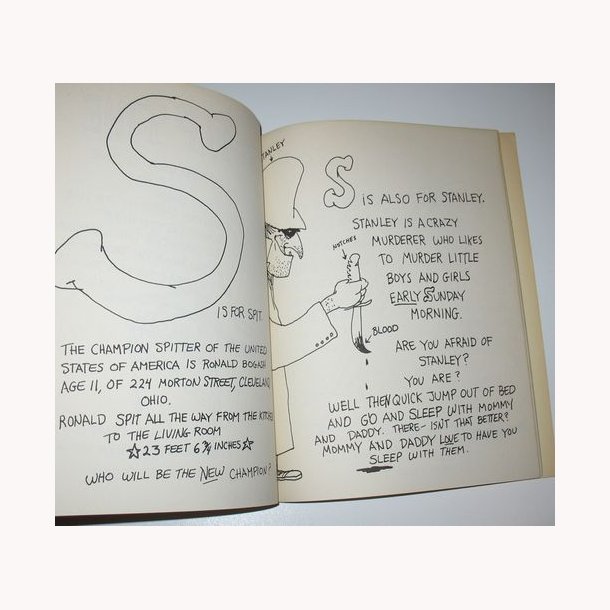 S
IS FOR SPIT.
THE CHAMPION SPITTER OF THE UNITED
STATES OF AMERICA IS RONALD BOGASH
AGE 11, OF 224 MORTON STREET, CLEVELAND
OHIO.
RONALD SPIT ALL THE WAY FROM THE KITCHEN
TO THE LIVING ROOM
☆23 FEET 6¾ INCHES☆
WHO WILL BE THE NEW CHAMPION?
STANLEY
S IS ALSO FOR STANLEY.
STANLEY IS A CRAZY
MURDERER WHO LIKES
TO MURDER LITTLE
BOYS AND GIRLS
EARLY SUNDAY
MORNING.
NOTCHES
BLOOD
ARE YOU AFRAID OF
STANLEY?
YOU ARE?
WELL THEN QUICK JUMP OUT OF BED
AND GO AND SLEEP WITH MOMMY
AND DADDY. THERE- ISN'T THAT BETTER?
MOMMY AND DADDY LOVE TO HAVE YOU
SLEEP WITH THEM.